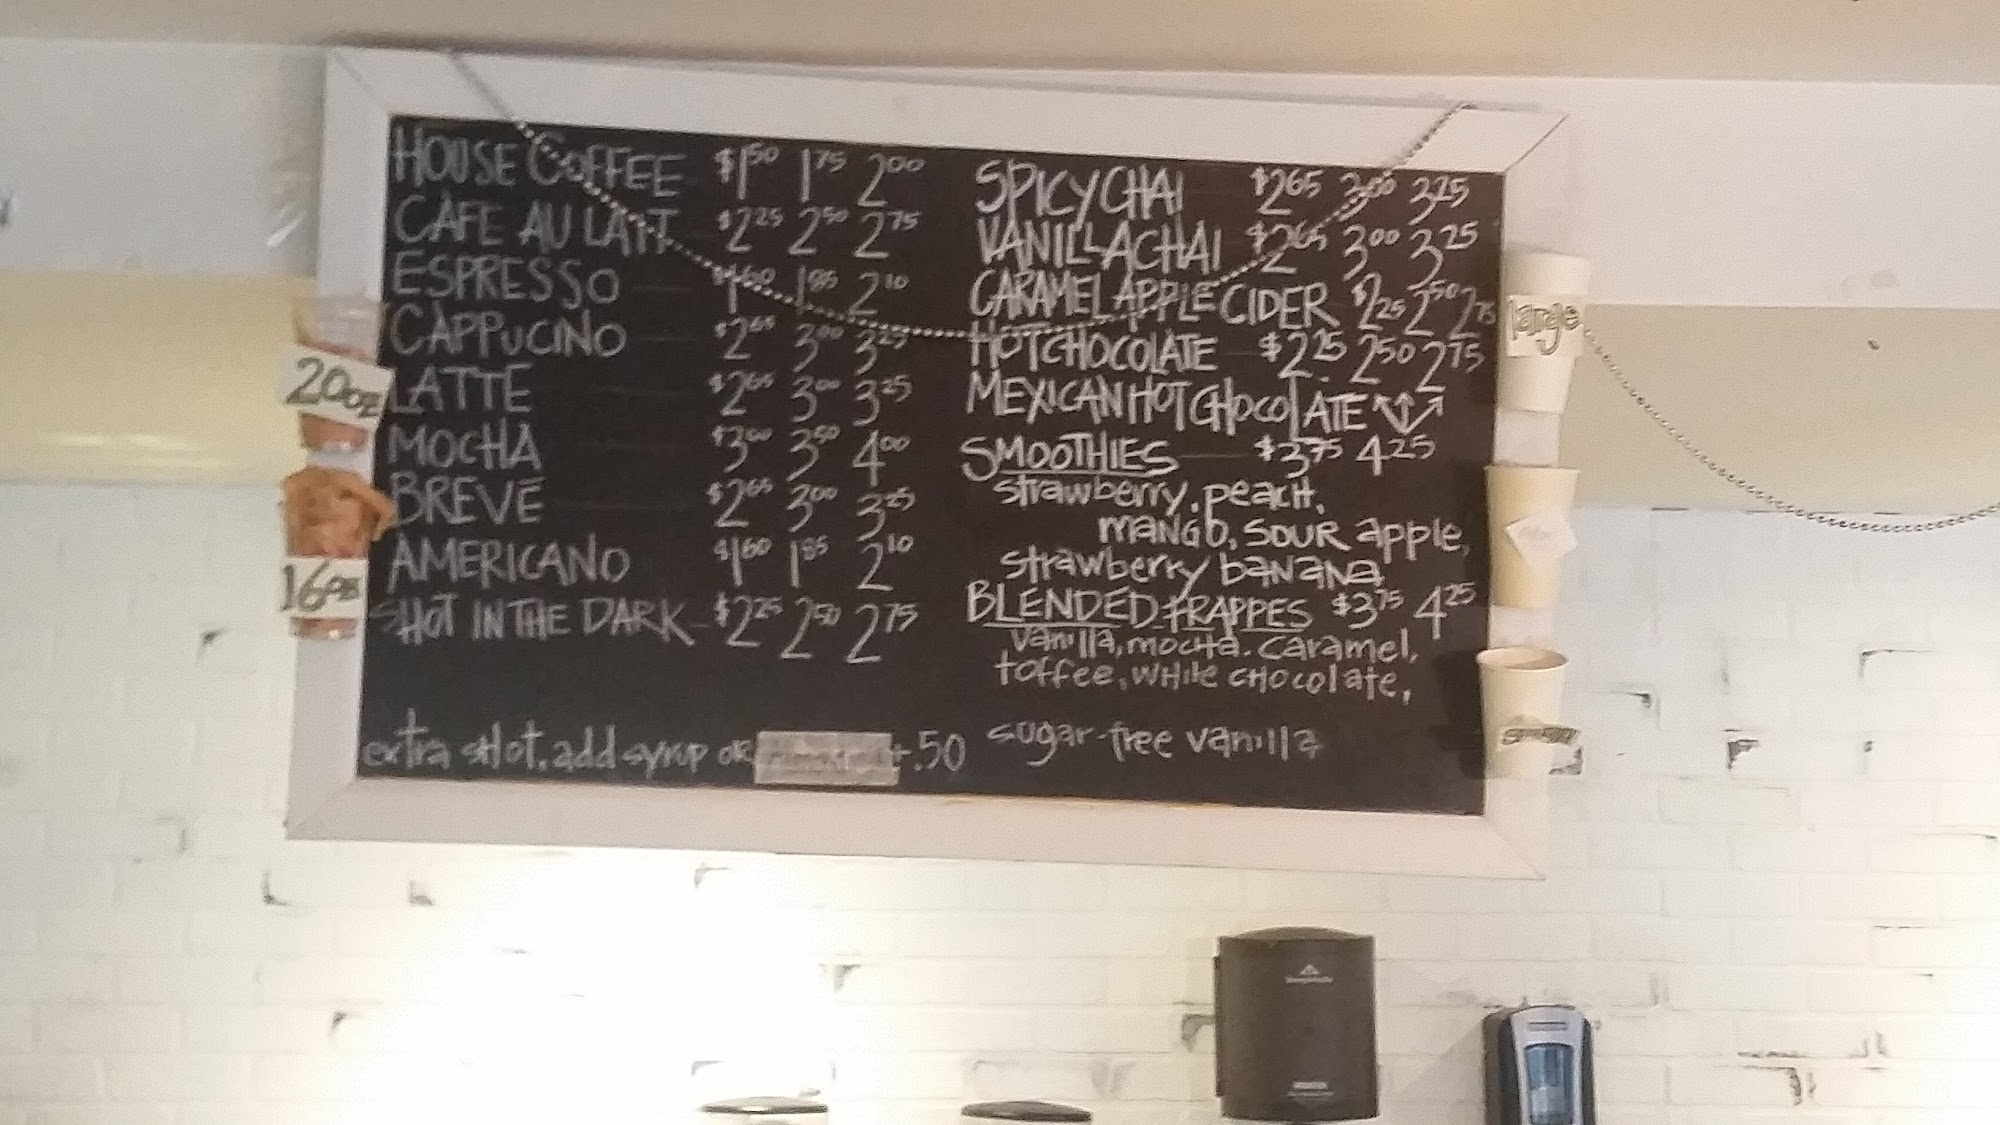 HOUSE COFFEE $1.50 1.75 2.00
CAFE AU LAIT $2.25 2.50 2.75
ESPRESSO $1.60 1.85 2.10
CAPPUCINO $2.65 3.00 3.25
LATTE $2.65 3.00 3.25
MOCHA $3.00 3.50 4.00
BREVE $2.65 3.00 3.25
AMERICANO $1.60 1.85 2.10
SHOT IN THE DARK $2.25 2.50 2.75
extra shot, add syrup or +.50
SPICY CHAI $2.65 3.00 3.25
VANILLA CHAI $2.65 3.00 3.25
CARAMEL APPLE CIDER $2.25 2.50 2.75
HOT CHOCOLATE $2.25 2.50 2.75
MEXICAN HOT CHOCOLATE
SMOOTHIES $3.75 4.25
strawberry, peach,
mango, sour apple,
strawberry banana
BLENDED FRAPPES $3.75 4.25
vanilla, mocha, caramel,
toffee, white chocolate,
sugar-free vanilla
20oz
16oz
large